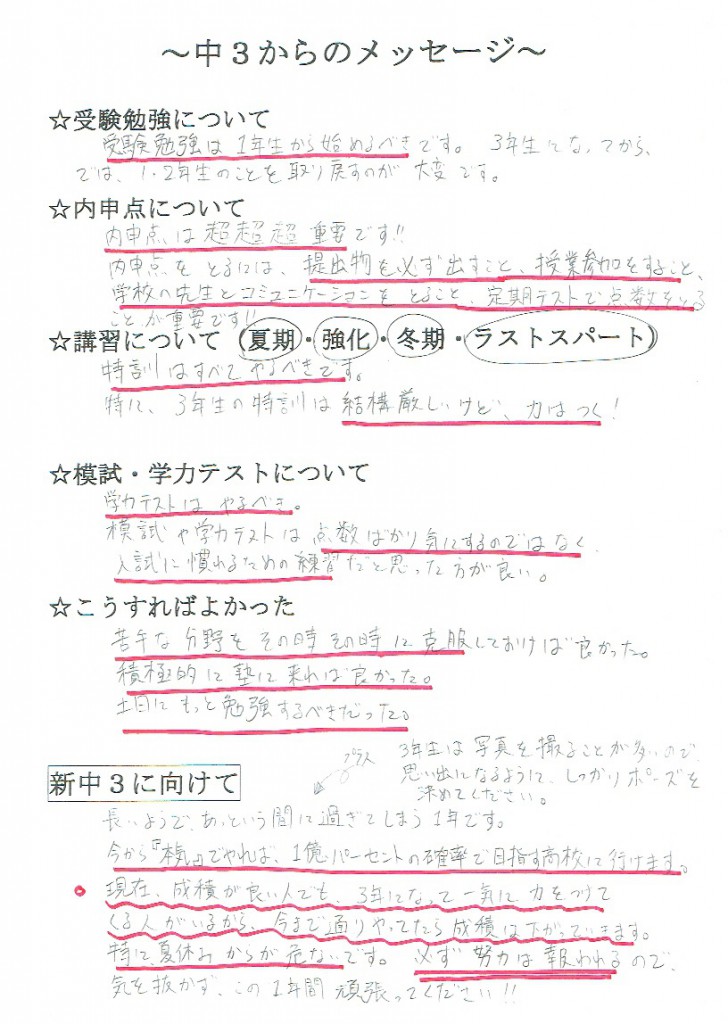 ～中３からのメッセージ～
☆受験勉強について
受験勉強は1年生から始めるべきです。 3年生になってから
では、1・2年生のことを取り戻すのが 大変です。
☆内申点について
内申点は超超超重要です!!
内申点をとるには、提出物を必ず出すこと、授業参加をすること、
学校の先生とコミュニケーションをとること、定期テストで点数をとる
ことが重要です!!
☆講習について（夏期・強化・冬期・ラストスパート）
特訓はすべてやるべきです。
特に、3年生の特訓は結構厳しいけど、力はつく！
☆模試・学力テストについて
学力テストはやるべき。
模試や学力テストは点数ばかり気にするのではなく
入試に慣れるための練習だと思った方が良い。
☆こうすればよかった
苦手な分野をその時その時に克服しておけば良かった。
積極的に塾に来れば良かった。
土日にもっと勉強するべきだった。
プラス
3年生は写真を撮ることが多いので、
思い出になるように、しっかりポーズを
決めてください。
新中３に向けて
長いようで、あっという間に過ぎてしまう1年です。
今から『本気』でやれば、1億パーセントの確率で目指す高校に行けます。
現在、成績が良い人でも、3年になって一気に力をつけて
くる人がいるから、今まで通りやってたら成績は下がっていきます。
特に夏休みからが危ないです。 必ず努力は報われるので、
気を抜かず、この1年間頑張ってください!!